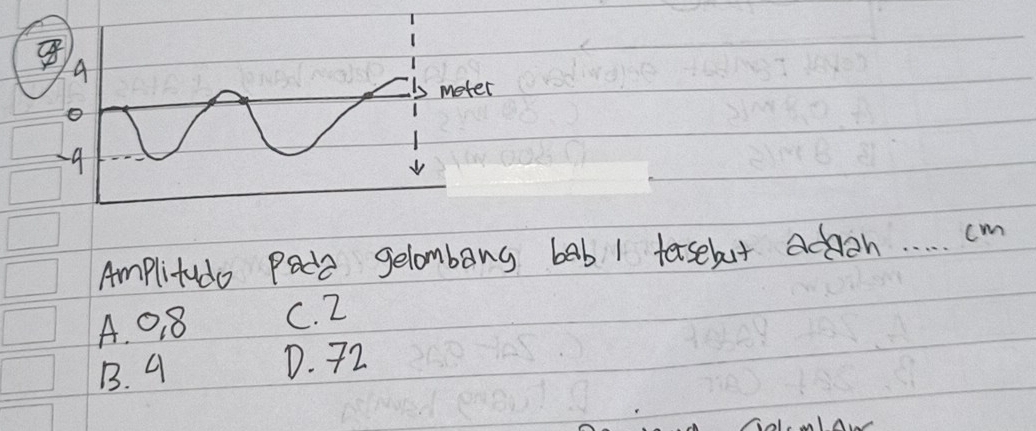 4
0
-4
meter
Amplitudo pada gelombang bab 1 tersebut adalah ..... cm
A. 0,8 C. 2
B. 4 D. 72